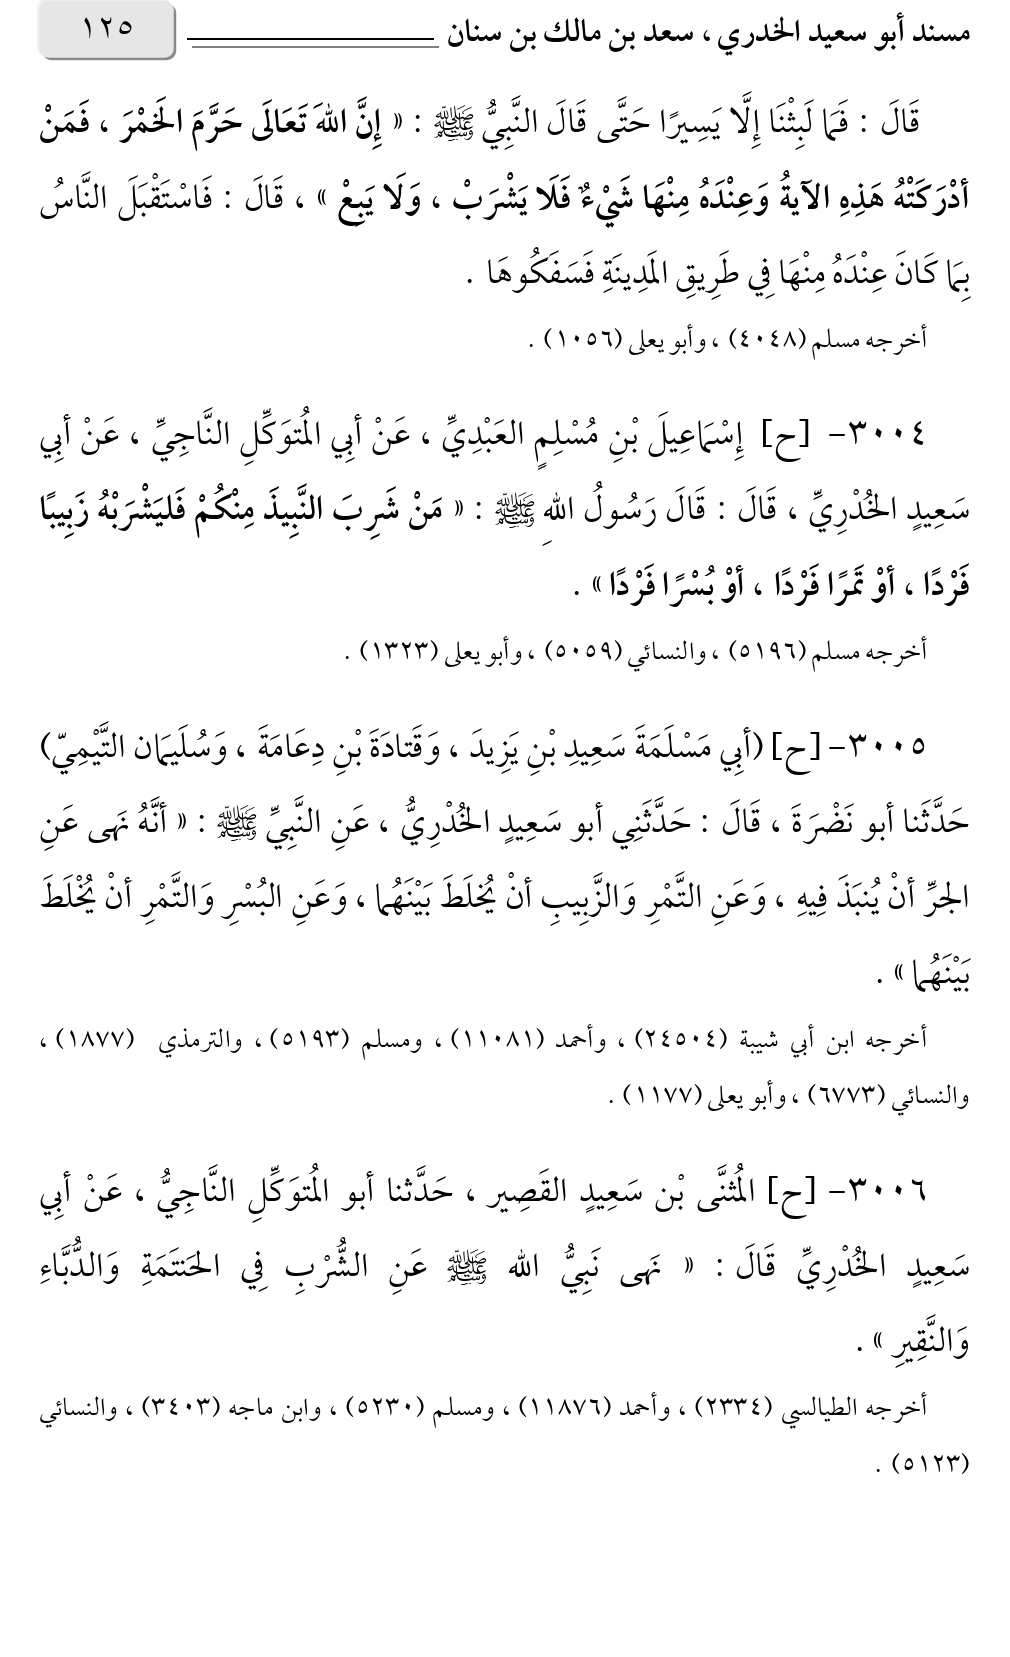 مسند أبو سعيد الخدري ، سعد بن مالك بن سنان ١٢٥
قَالَ : فَمَا لَبِثْنَا إِلَّا يَسِيرًا حَتَّى قَالَ النَّبِيُّ ﷺ : « إِنَّ اللهَ تَعَالَى حَرَّمَ الخَمْرَ ، فَمَنْ
أدْرَكَتْهُ هَذِهِ الآيةُ وَعِنْدَهُ مِنْهَا شَيْءٌ فَلَا يَشْرَبْ ، وَلَا يَبِعْ » ، قَالَ : فَاسْتَقْبَلَ النَّاسُ
بِمَا كَانَ عِنْدَهُ مِنْهَا فِي طَرِيقِ المَدِينَةِ فَسَفَكُوهَا .
أخرجه مسلم (٤٠٤٨) ، وأبو يعلى (١٠٥٦) .
٣٠٠٤- [ح] إِسْمَاعِيلَ بْنِ مُسْلِمٍ العَبْدِيِّ ، عَنْ أبي المُتوَكِّلِ النَّاجِيِّ ، عَنْ أبي
سَعِيدٍ الخُدْرِيِّ ، قَالَ : قَالَ رَسُولُ اللهِ ﷺ : « مَنْ شَرِبَ النَّبِيذَ مِنْكُمْ فَليَشْرَبْهُ زَبِيبًا
فَرْدًا ، أوْ تَمرًا فَرْدًا ، أوْ بُسْرًا فَرْدًا » .
أخرجه مسلم (٥١٩٦) ، والنسائي (٥٠٥٩) ، وأبو يعلى (١٣٢٣) .
٣٠٠٥- [ح] (أبِي مَسْلَمَةَ سَعِيدِ بْنِ يَزِيدَ ، وَقَتادَةَ بْنِ دِعَامَةَ ، وَسُلَيمَان التَّيْمِيّ)
حَدَّثَنا أبو نَضْرَةَ ، قَالَ : حَدَّثَنِي أبو سَعِيدٍ الخُدْرِيُّ ، عَنِ النَّبِيِّ ﷺ : « أنَّهُ نَهى عَنِ
الجرِّ أنْ يُنبَذَ فِيهِ ، وَعَنِ التَّمْرِ وَالزَّبِيبِ أنْ يُخلَطَ بَيْنَهُما ، وَعَنِ البُسْرِ وَالتَّمْرِ أنْ يُخْلَطَ
بَيْنَهُما » .
أخرجه ابن أبي شيبة (٢٤٥٠٤) ، وأحمد (١١٠٨١) ، ومسلم (٥١٩٣) ، والترمذي (١٨٧٧) ،
والنسائي (٦٧٧٣) ، وأبو يعلى (١١٧٧) .
٣٠٠٦- [ح] المُثنَّى بْن سَعِيدٍ القَصِير ، حَدَّثنا أبو المُتوَكِّلِ النَّاجِيُّ ، عَنْ أبِي
سَعِيدٍ الخُدْرِيِّ قَالَ : « نَهى نَبِيُّ الله ﷺ عَنِ الشُّرْبِ فِي الحَنتَمَةِ وَالدُّبَّاءِ
وَالنَّقِيرِ » .
أخرجه الطيالسي (٢٣٣٤) ، وأحمد (١١٨٧٦) ، ومسلم (٥٢٣٠) ، وابن ماجه (٣٤٠٣) ، والنسائي
(٥١٢٣) .